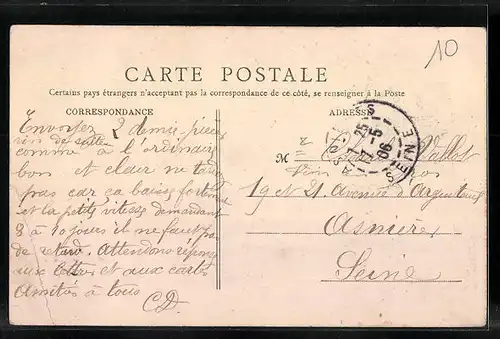 10
CARTE POSTALE
Certains pays étrangers n'acceptant pas la correspondance de ce côté, se renseigner à la Poste
CORRESPONDANCE
ADRESSE
Envoyez 2 demie pieces
vin de
comme à l'ordinaire
bon et clair ne
pas car ça baisse fortement
et la petite vitesse demandant
8 à 10 jours il ne faut pas
de retard. Attendons réponse
aux lettres et aux cartes
Amitiés à tous
CD.
25
21 -5
06
SEINE
M Vallot
19 et 21 Avenue d'Argenteuil
Asnières
Seine